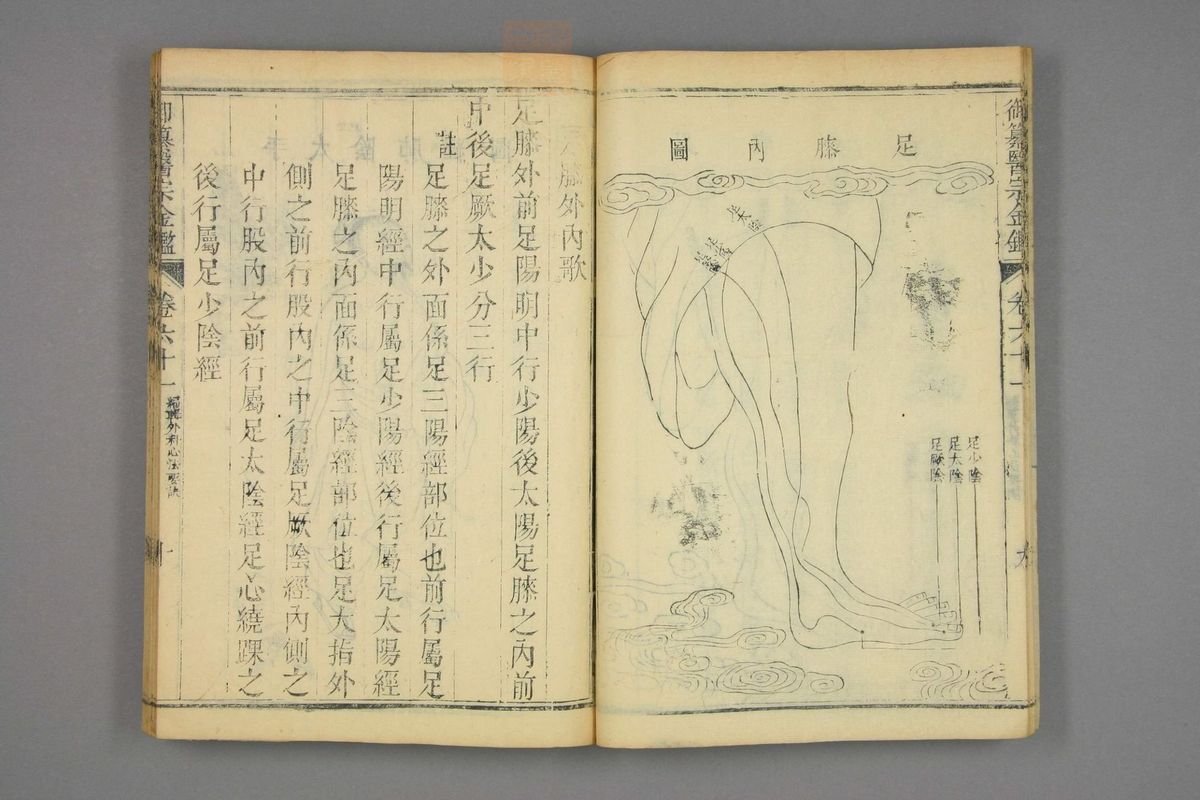 御纂醫宗金鑑 卷六十一
足膝內圖
足少陰
足太陰
足厥陰
膝外內歌
足膝外前足陽明中行少陽後太陽足膝之內前
中後足厥太少分三行
註 足膝之外面係足三陽經部位也前行屬足
陽明經中行屬足少陽經後行屬足太陽經
足膝之內面係足三陰經部位也足大指外
側之前行股內之中行屬足厥陰經內側之
中行股內之前行屬足太陰經足心繞踝之
後行屬足少陰經
御纂醫宗金鑑 卷六十一 編輯外科心法要訣